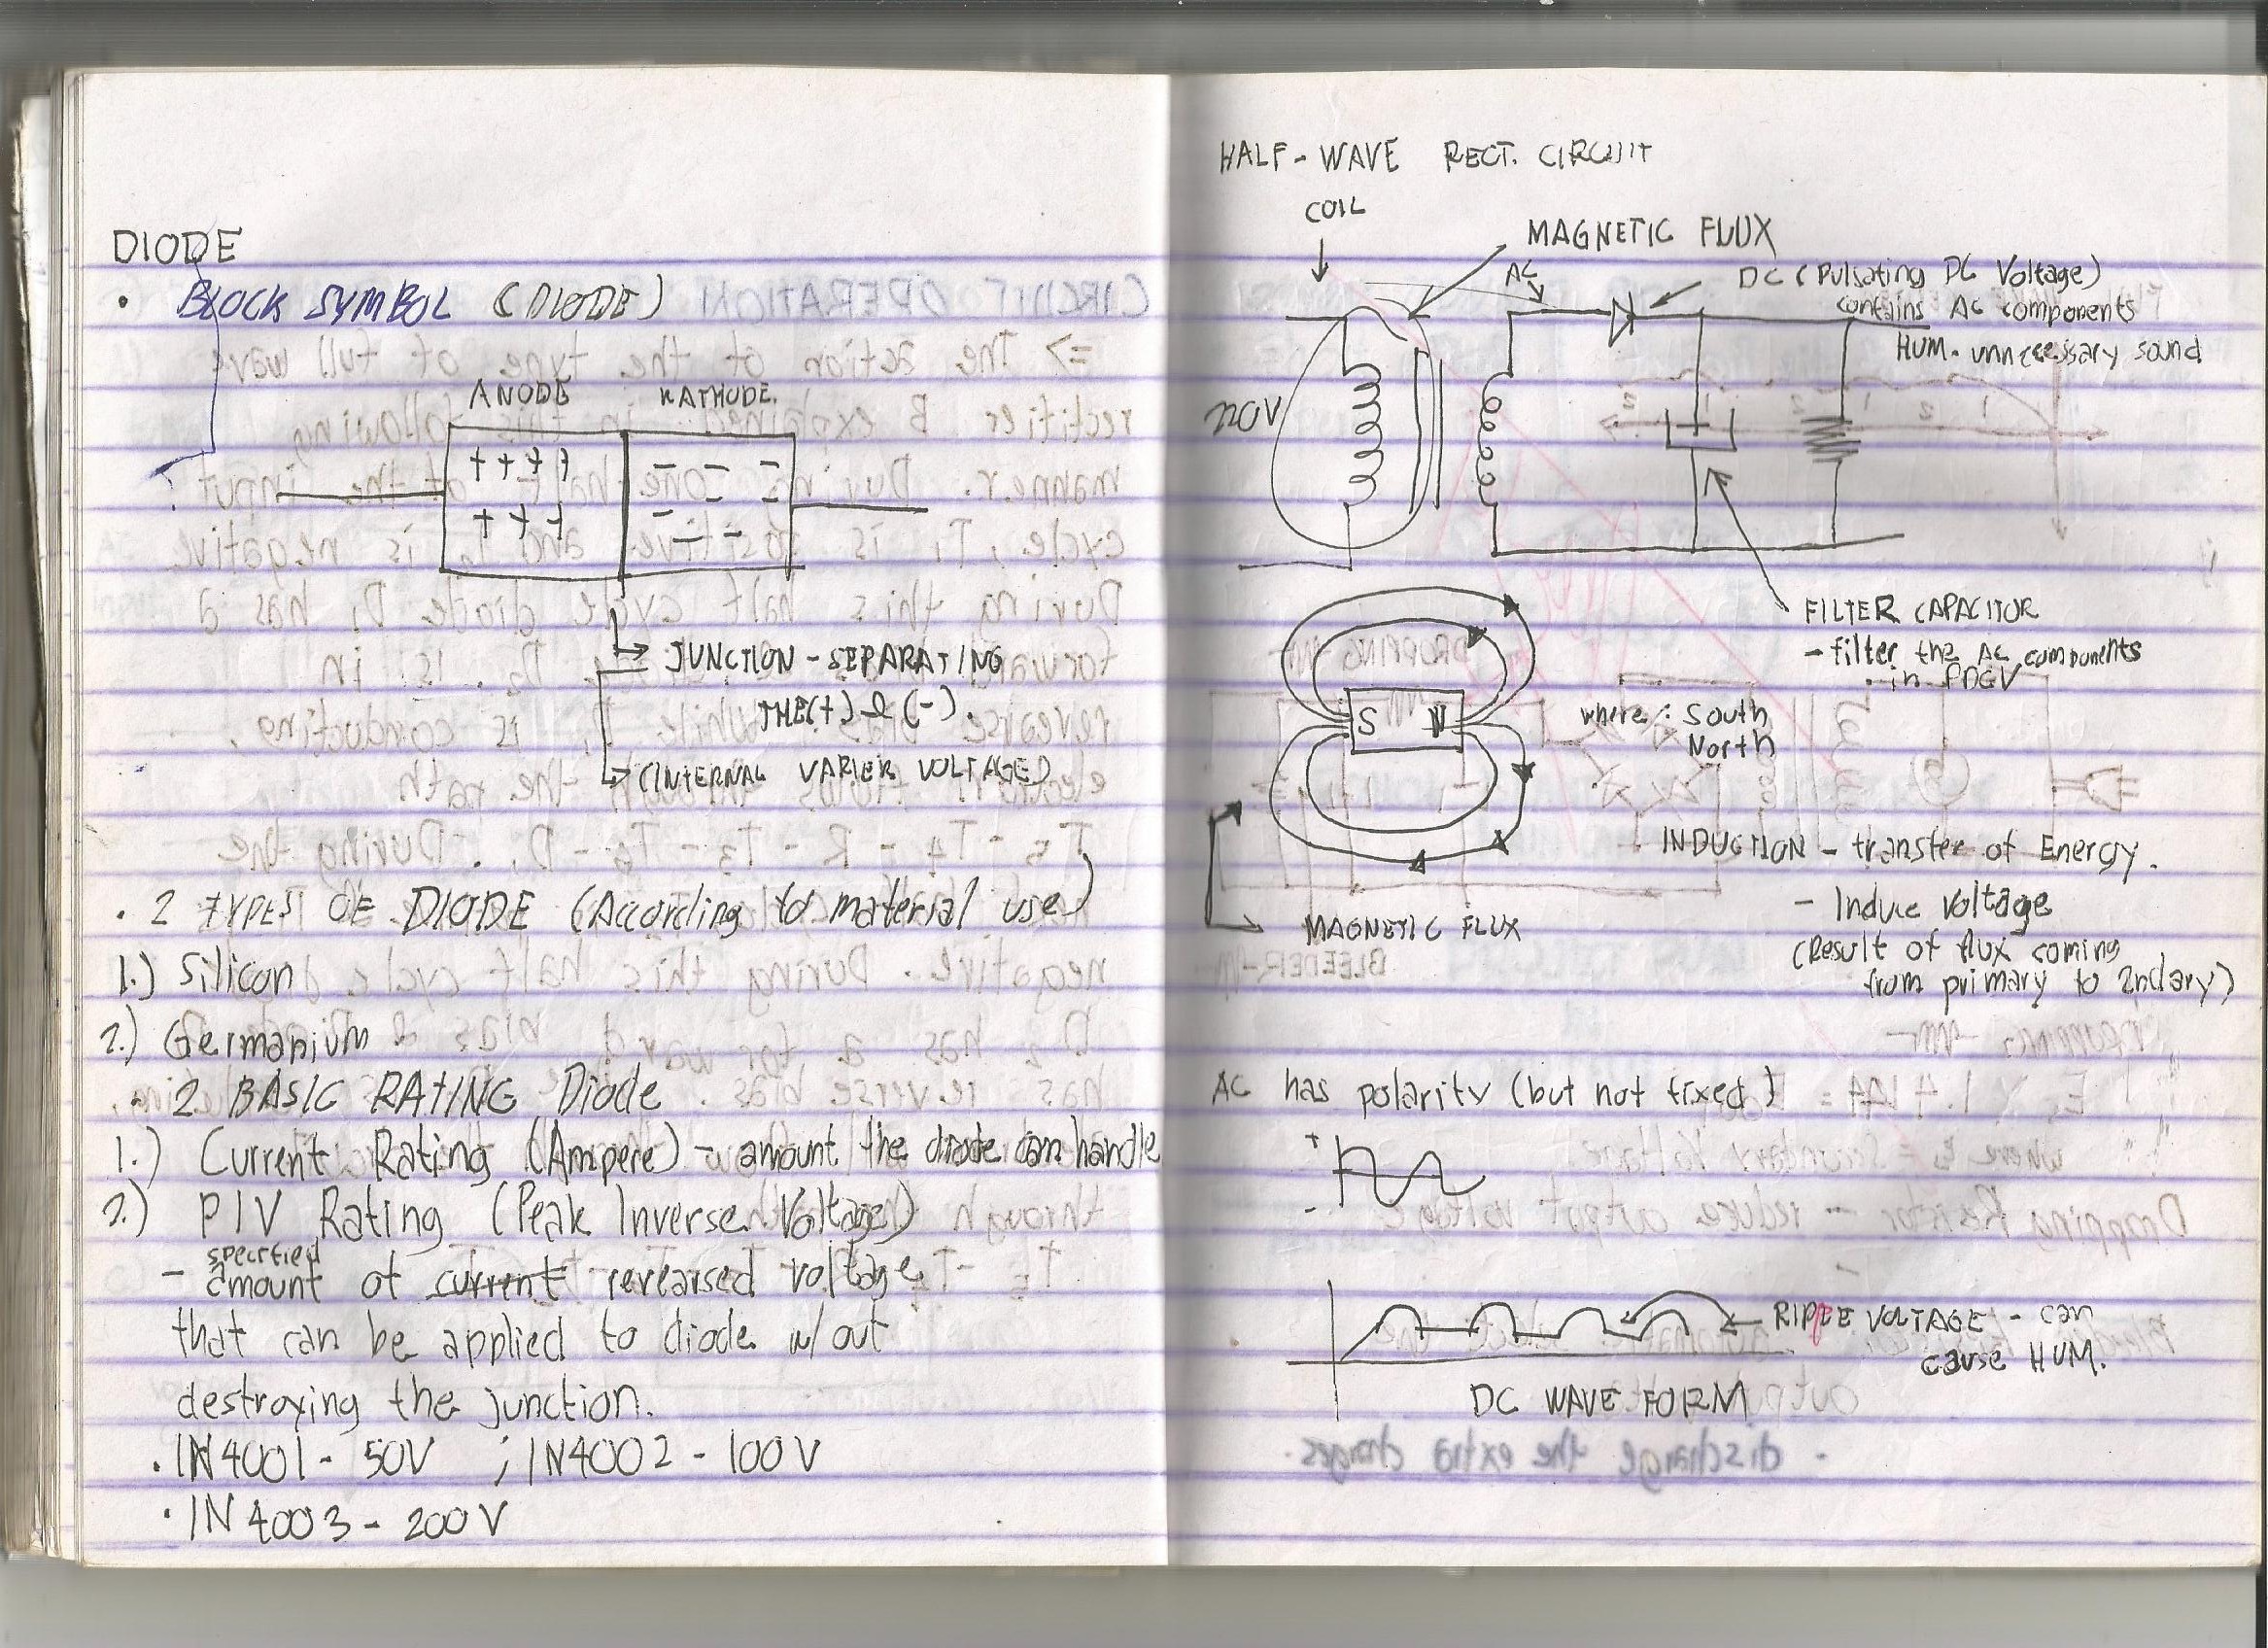 DIODE
• BLOCK SYMBOL (DIODE)
ANODE KATHODE.
+ + + + - - -
+ + + - - -
JUNCTION - SEPARATING
THE (+) & (-).
(INTERNAL VARIER VOLTAGE)
• 2 TYPES OF DIODE (According to material use)
1.) Silicon
2.) Germanium
• 2 BASIC RATING Diode
1.) Current Rating (Ampere) - amount the diode can handle
2.) PIV Rating (Peak Inverse Voltage)
specified
- amount of current revearsed voltage
that can be applied to diode w/out
destroying the junction.
• 1N4001 - 50V ; 1N4002 - 100V
• 1N4003 - 200V
HALF - WAVE RECT. CIRCUIT
COIL
MAGNETIC FLUX
AC
DC (Pulsating DC Voltage)
contains AC components
HUM. unnecessary sound
220V
+
FILTER CAPACITOR
- filter the AC components
in PDCV
S N
where: South
North
INDUCTION - transfer of Energy.
- Induce Voltage
(Result of flux coming
from primary to 2ndary)
MAGNETIC FLUX
AC has polarity (but not fixed)
+
-
RIPPLE VOLTAGE - can
cause HUM.
DC WAVE FORM